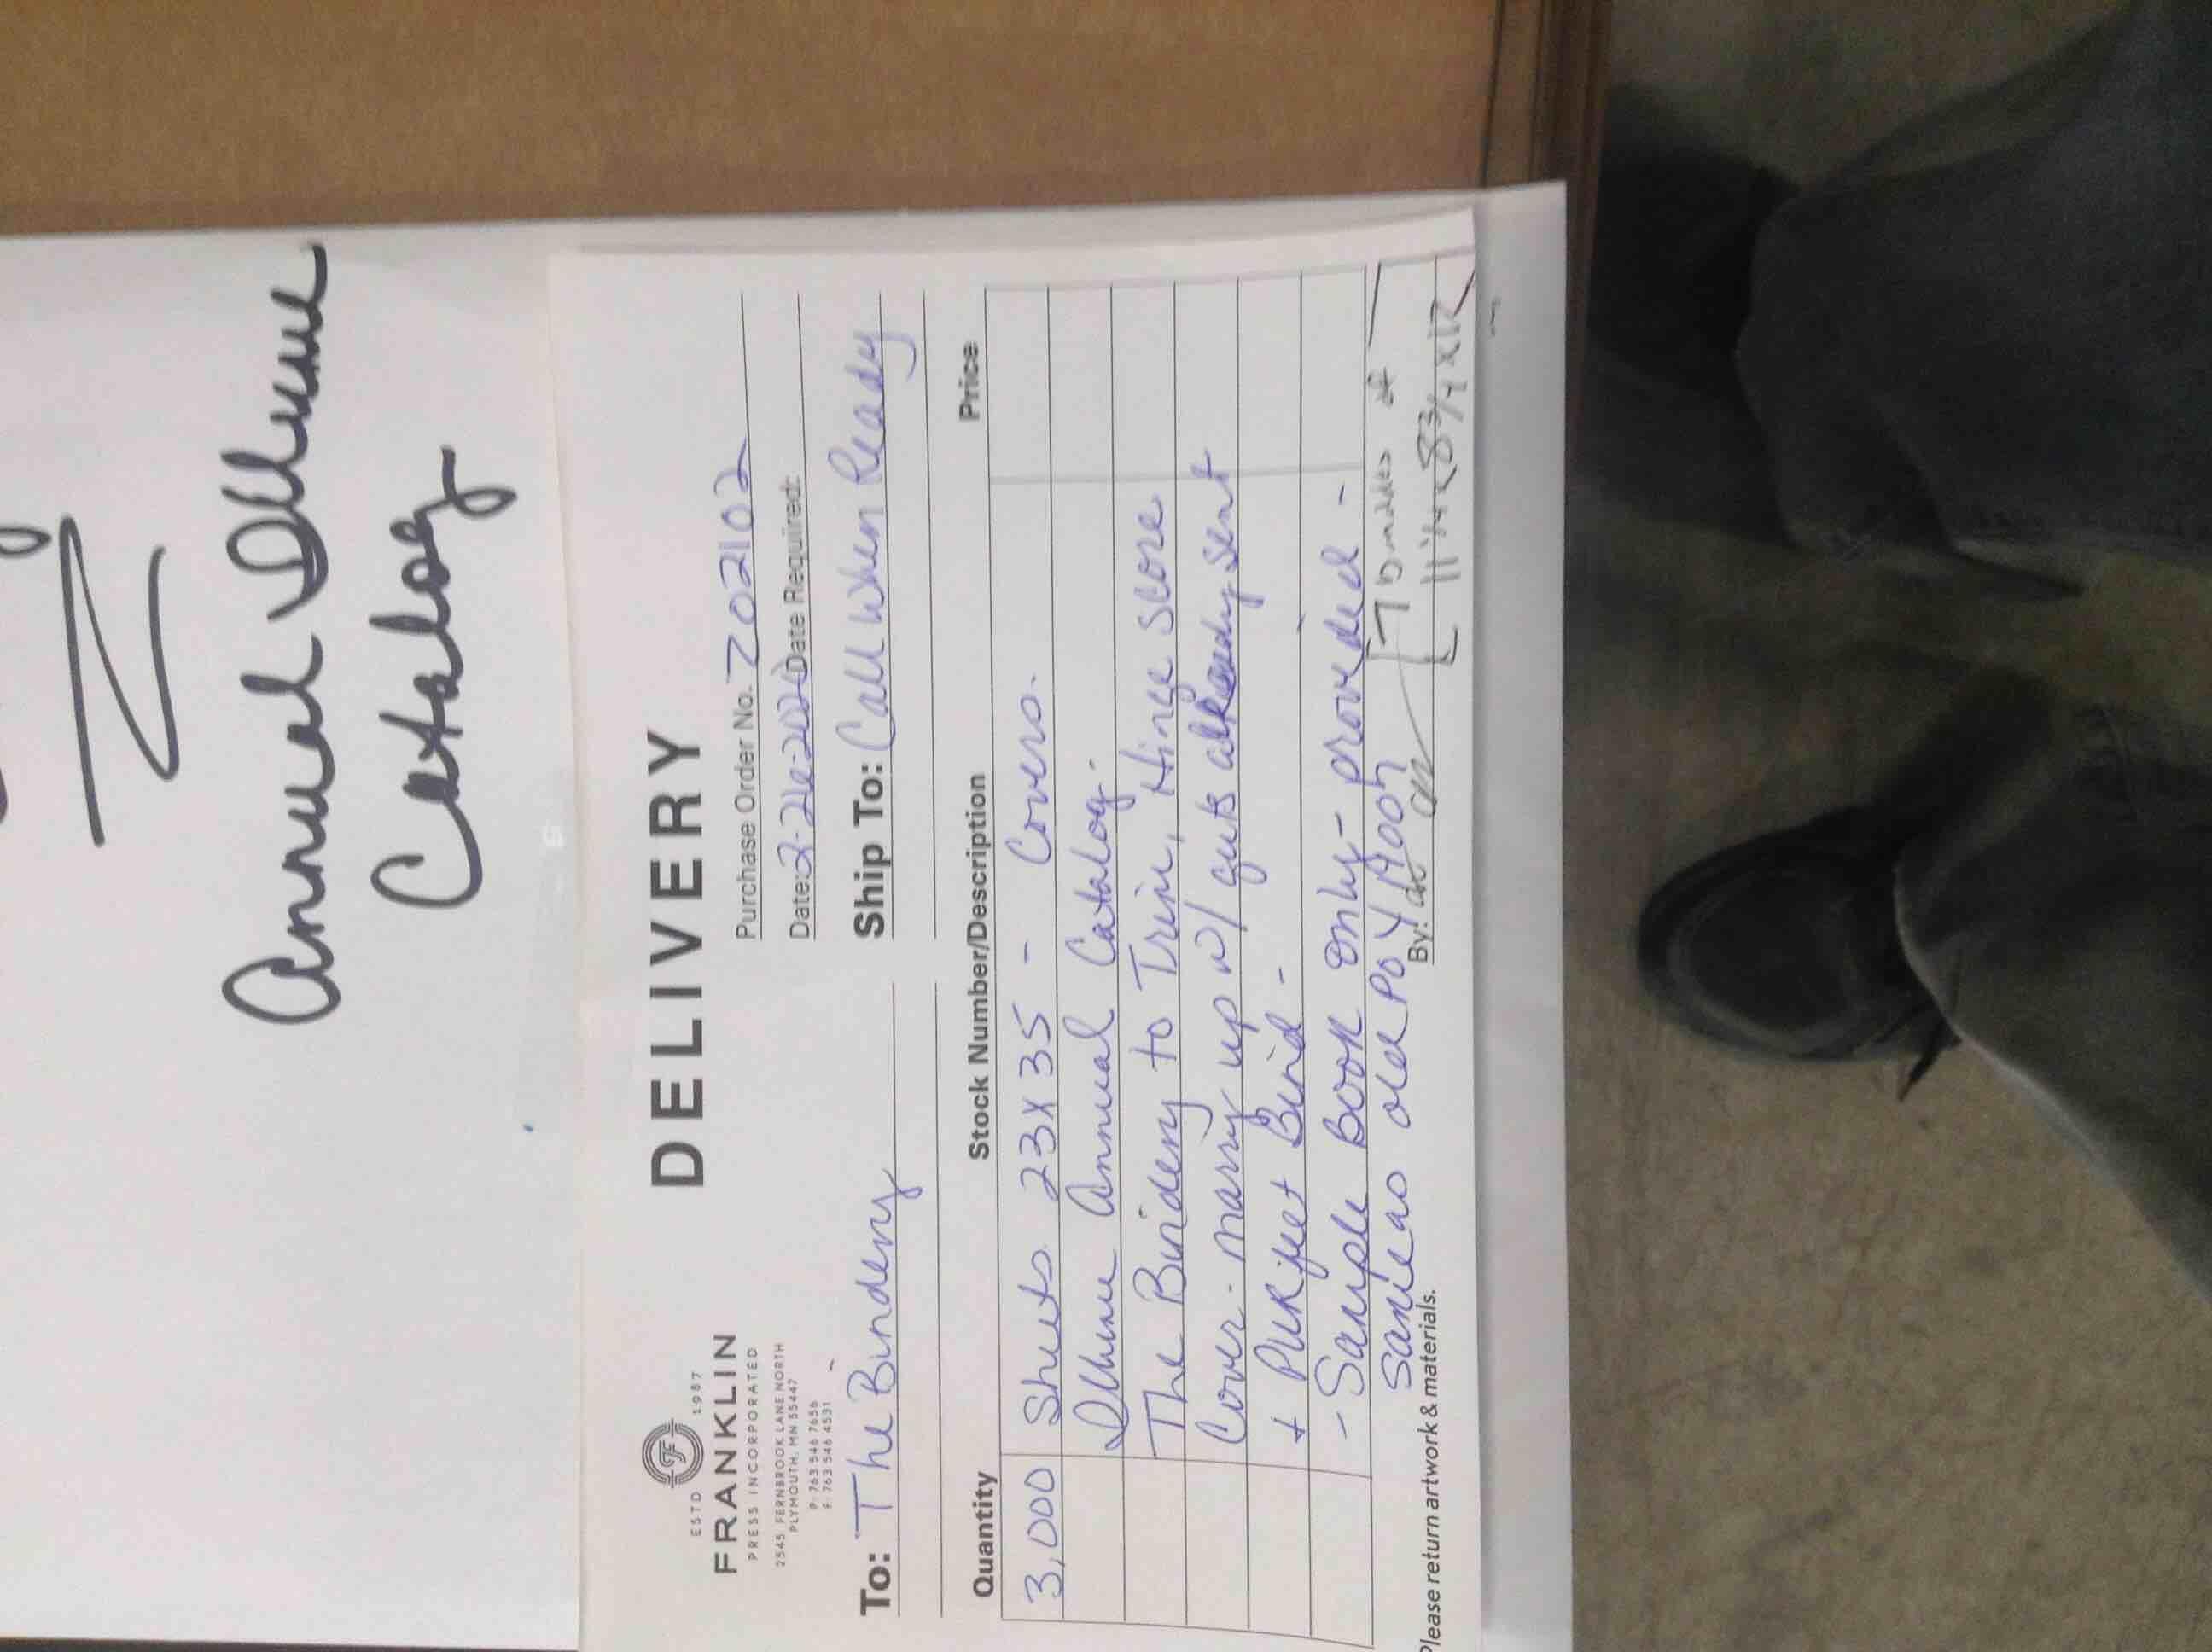 Annual
Catalog
ESTD 1987
FRANKLIN
PRESS INCORPORATED
2545 FERNBROOK LANE NORTH
PLYMOUTH, MN 55447
P: 763 546 7656
F: 763 546 4531
DELIVERY
Purchase Order No. 202102
Date: Date Required:
To: The Bindery
Ship To: Call When Ready
Quantity Stock Number/Description Price
3,000 Sheets 23x35 - Covers.
Annual Catalog.
The Bindery to Trim, Hinge score
Cover - marry up w/ guts already sent
+ Perfect Bind -
- Sample Book Only - provided -
Same as old PO
Please return artwork & materials.
By: